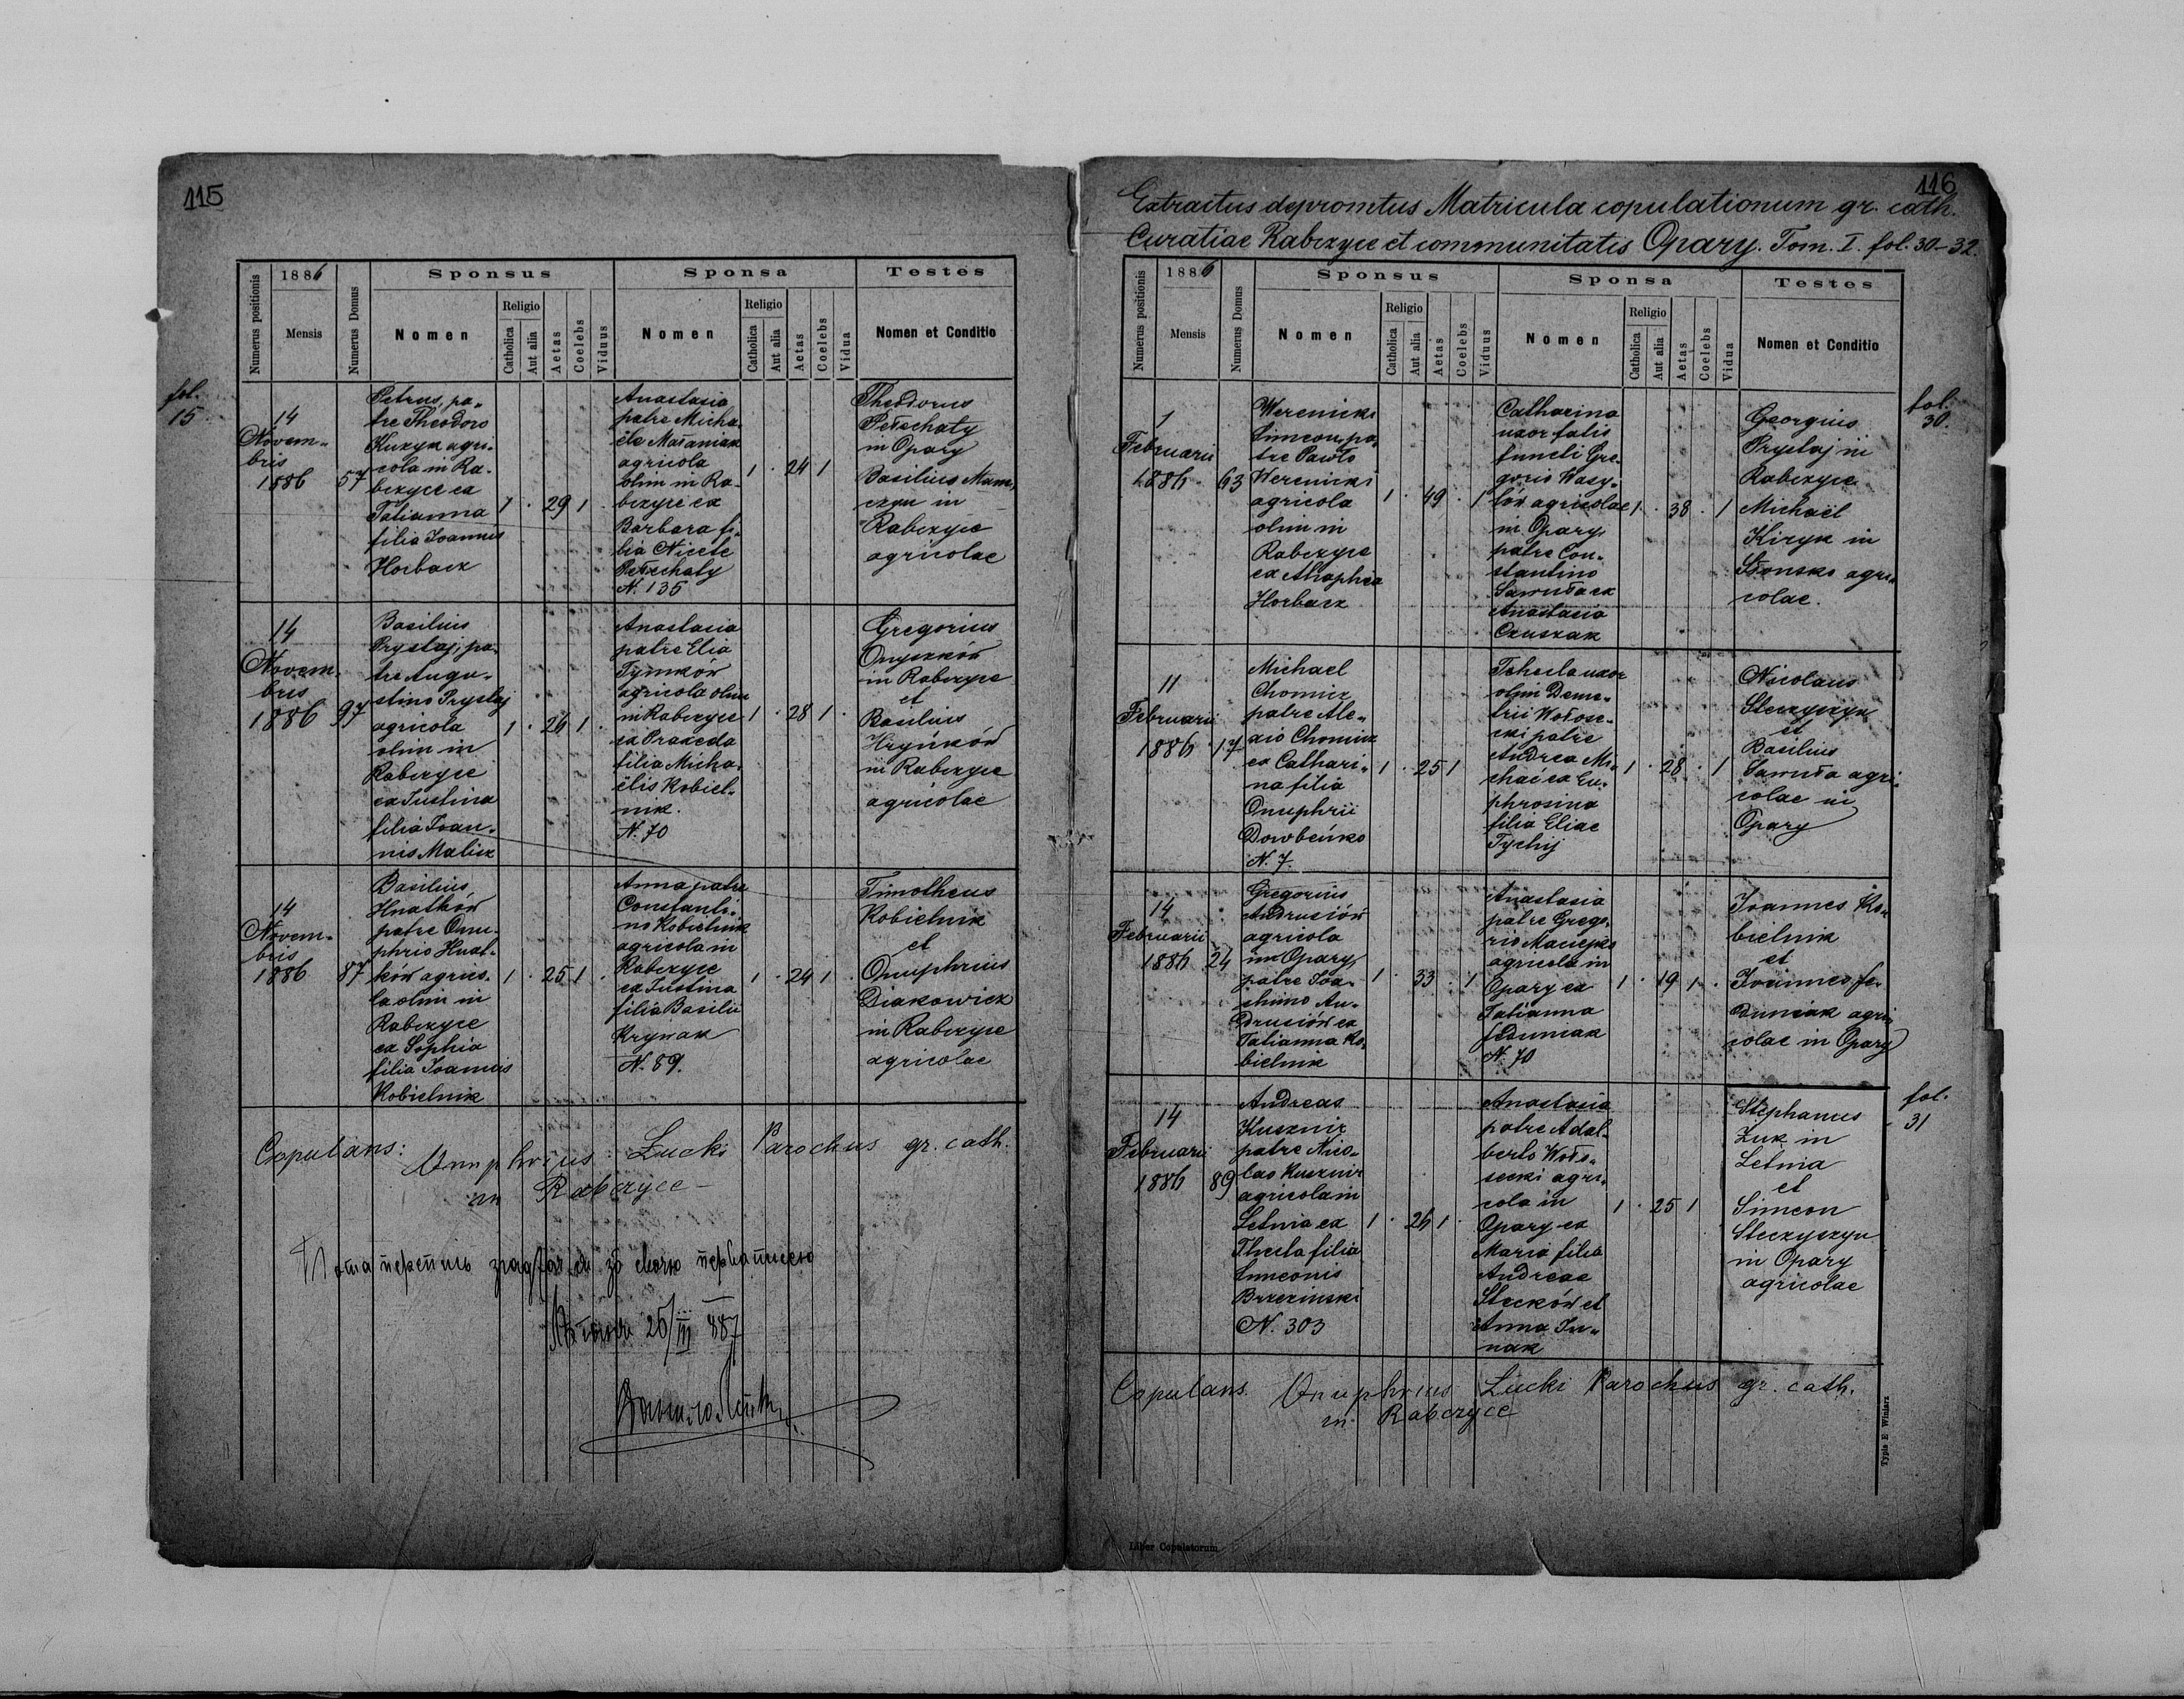 115
1886
Sponsus
Sponsa
Testes
Numerus positionis
Mensis
Numerus Domus
Nomen
Religio
Catholica
Aut alia
Aetas
Coelebs
Viduus
Nomen
Religio
Catholica
Aut alia
Aetas
Coelebs
Vidua
Nomen et Conditio
fol.
15
14
Novem-
bris
1886
57
Petrus, pa-
tre Theodoro
Kuzyk agri-
cola in Ra-
bczyce ex
Tatianna
filia Joannis
Horbacz
1 . 29 1 .
Anastasia
patre Micha-
ële Małaniak
agricola
olim in Ra-
bczyce ex
Barbara fi-
lia Nicetae
Pełechaty
N. 135
1 . 24 1
Theodorus
Pełechaty
in Opary
Basilius Mam-
czyn in
Rabczyce
agricolae
14
Novem-
bris
1886
97
Basilius
Prystaj, pa-
tre Augu-
stino Prystaj
agricola
olim in
Rabczyce
ex Justina
filia Joan-
nis Malicz
1 . 26 1 .
Anastasia
patre Elia
Tymków
agricola olim
in Rabczyce
ex Praxeda
filia Micha-
ëlis Kobiel-
nik.
N. 70
1 . 28 1 .
Gregorius
Onyszków
in Rabczyce
et
Basilius
Hryńków
in Rabczyce
agricolae
14
Novem-
bris
1886
87
Basilius
Hnatków
patre Onu-
phrio Hnat-
ków agrico-
la olim in
Rabczyce
ex Sophia
filia Joannis
Kobielnik
1 . 25 1 .
Anna patre
Constanti-
no Kobielnik
agricola in
Rabczyce
ex Justina
filia Basilii
Krynak
N. 89.
1 . 24 1 .
Timotheus
Kobielnik
et
Onuphrius
Diakowicz
in Rabczyce
agricolae
Copulans: Onuphrius Lucki Parochus gr. cath.
in Rabczyce
26/III 887
116
Extractus depromtus Matricula copulationum gr. cath.
Curatiae Rabczyce et communitatis Opary. Tom. I. fol. 30-32.
1886
Sponsus
Sponsa
Testes
Numerus positionis
Mensis
Numerus Domus
Nomen
Religio
Catholica
Aut alia
Aetas
Coelebs
Viduus
Nomen
Religio
Catholica
Aut alia
Aetas
Coelebs
Vidua
Nomen et Conditio
fol.
30.
1
Februarii
1886
63
Werenicki
Simeon, pa-
tre Pawło
Werenicki
agricola
olim in
Rabczyce
ex Ahaphia
Horbacz
1 . 49 . 1
Catharina
uxor fatis
functi Gre-
gorio Wasy-
lów agricolae
in Opary
patre Con-
stantino
Sawuła ex
Anastasia
1 . 38 . 1
Georgius
Prystaj in
Rabczyce
Michaël
Kiryk in
Słonsko agri-
colae.
11
Februarii
1886
17
Michael
Chomicz
patre Ale-
xio Chomicz
ex Cathari-
na filia
Onuphrii
Dowbeńko
N. 7.
1 . 25 1
Thecla uxor
olim Deme-
trii Wołose-
cki patre
Andrea Mi-
chać ex Eu-
phrosina
filia Eliae
Tychij
1 . 28 . 1
Nicolaus
Steczyszyn
et
Basilius
Sawuła agri-
colae in
Opary
14
Februarii
1886
24
Gregorius
Andrusiów
agricola
in Opary
patre Joa-
chimo An-
drusiów ex
Tatianna Ko-
bielnik
1 . 33 . 1
Anastasia
patre Grego-
rio Maciejko
agricola in
Opary ex
Tatianna
Feduniak
N. 70
1 . 19 1 .
Joannes Ko-
bielnik
et
Joannes Fe-
duniak agri-
colae in Opary
fol.
31
14
Februarii
1886
89
Andreas
Kusznir
patre Nico-
lao Kusznir
agricola in
Letnia ex
Thecla filia
Simeonis
Brzezinski
N. 303
1 . 26 1 .
Anastasia
patre Adal-
berto Woło-
secki agri-
cola in
Opary ex
Maria filia
Andreae
Steców et
Anna Ju-
nak
1 . 25 1
Stephanus
Zuk in
Letnia
et
Simeon
Steczyszyn
in Opary
agricolae
Copulans. Onuphrius Lucki Parochus gr. cath.
in Rabczyce
Typis E Winiarz
Liber Copulatorum